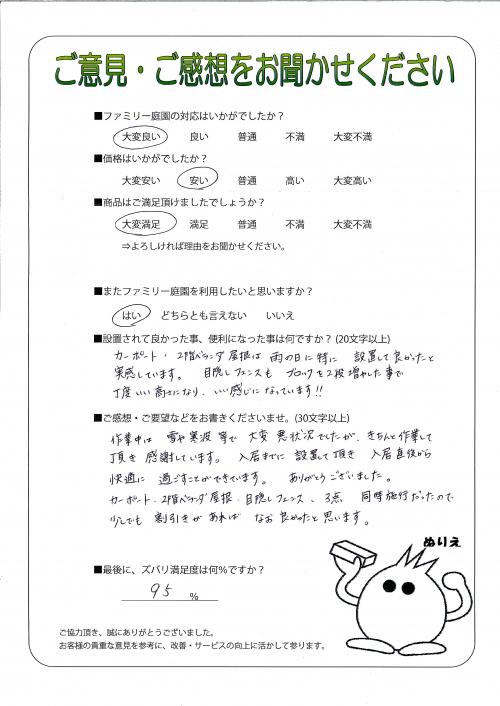 ご意見・ご感想をお聞かせください
■ファミリー庭園の対応はいかがでしたか？
大変良い 良い 普通 不満 大変不満
■価格はいかがでしたか？
大変安い 安い 普通 高い 大変高い
■商品はご満足頂けましたでしょうか？
大変満足 満足 普通 不満 大変不満
⇒よろしければ理由をお聞かせください。
■またファミリー庭園を利用したいと思いますか？
はい どちらとも言えない いいえ
■設置されて良かった事、便利になった事は何ですか？(20文字以上)
カーポート・2階ベランダ屋根は 雨の日に特に 設置して良かったと
実感しています。 目隠しフェンスも ブロックを2段増やした事で
丁度いい高さになり、いい感じになっています!!
■ご感想・ご要望などをお書きくださいませ。(30文字以上)
作業中は 雪や寒波等で 大変悪状況でしたが、きちんと作業して
頂き感謝しています。 入居までに設置して頂き 入居直後から
快適に 過ごすことができています。 ありがとうございました。
カーポート・2階ベランダ屋根・目隠しフェンス、3点 同時施行だったので
少しでも 割引きがあれば なお良かったと思います。
ぬりえ
■最後に、ズバリ満足度は何％ですか？
95 %
ご協力頂き、誠にありがとうございました。
お客様の貴重な意見を参考に、改善・サービスの向上に活かして参ります。